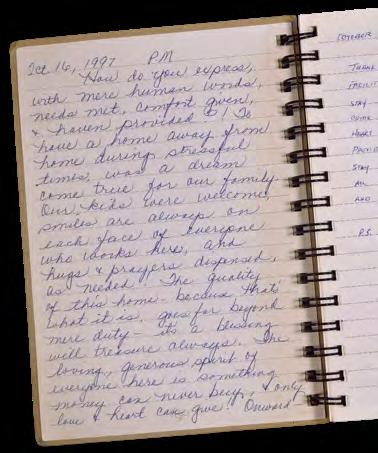 Oct 16, 1997 PM
How do you express,
with mere human words,
needs met, comfort given,
& haven provided? To
have a home away from
home during stressful
times, was a dream
come true for our family.
Our kids were welcome,
smiles are always on
each face of everyone
who works here, and
hugs & prayers dispensed,
as needed. The quality
of this home - because that's
what it is, goes far beyond
mere duty - it's a blessing
will treasure always. The
loving, generous spirit of
everyone here is something
money can never buy, & only
love & heart can give! Onward
OCTOBER
THANK
FACILIT
STAY
COME
HEART
PROVID
STAY
ALL
AND
P.S.